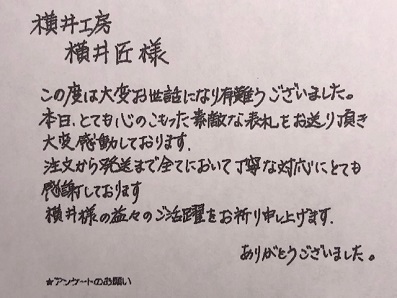 横井工房
横井匠様
この度は大変お世話になり有難うございました。
本日、とても心のこもった素敵な表札をお送り頂き
大変感動しております。
注文から発送まで全てにおいて丁寧な対応にとても
感謝しております
横井様の益々のご活躍をお祈り申し上げます。
ありがとうございました。
★アンケートのお願い